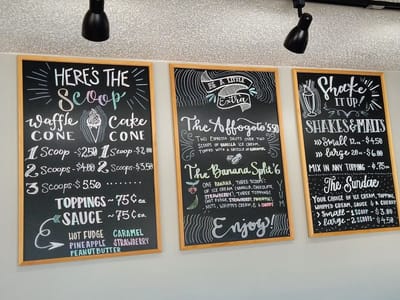 HERE'S THE
Scoop
Waffle Cake
CONE CONE
1 Scoop - $2.50 1 Scoop - $2.00
2 Scoops - $4.00 2 Scoops - $3.50
3 Scoops - $5.50
TOPPINGS ~ 75¢ ea
SAUCE ~ 75¢ ea.
HOT FUDGE CARAMEL
PINEAPPLE STRAWBERRY
PEANUT BUTTER
BE A LITTLE
Extra
The Affogato $5.50
TWO ESPRESSO SHOTS OVER TWO
SCOOPS OF VANILLA ICE CREAM,
TOPPED WITH A DRIZZLE OF
The Banana Split $6
ONE BANANA, THREE SCOOPS
OF ICE CREAM (VANILLA, CHOCOLATE,
STRAWBERRY), THREE TOPPINGS
(HOT FUDGE, STRAWBERRY, PINEAPPLE),
NUTS, WHIPPED CREAM, & A CHERRY
Enjoy!
Shake
IT UP!
SHAKES & MALTS
Small 12 oz - $4.50
Large 20 oz - $6.00
MIX IN ANY TOPPING - $.75
The Sundae
YOUR CHOICE OF ICE CREAM, TOPPING,
WHIPPED CREAM, SAUCE, & CHERRY
> Small - 1 Scoop - $3.00
> Large - 2 Scoops - $4.50